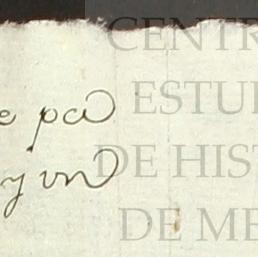 e pa
y un
CENTR
ESTU
DE HIST
DE ME